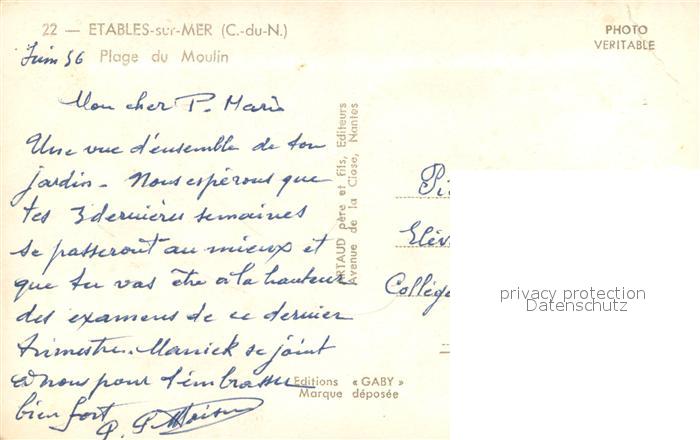 22 — ETABLES-sur-MER (C.-du-N.)
Juin 56 Plage du Moulin
PHOTO
VERITABLE
Mon cher P. Marie
Une vue d'ensemble de ton
jardin - Nous espérons que
tes 3 dernières semaines
se passeront au mieux et
que tu vas être à la hauteur
des examens de ce dernier
trimestre. Mannick se joint
à nous pour t'embrasser
bien fort
ARTAUD père et Fils, Editeurs
Avenue de la Close, Nantes
Pi
Elèv
Collége
privacy protection
Datenschutz
Editions « GABY »
Marque déposée